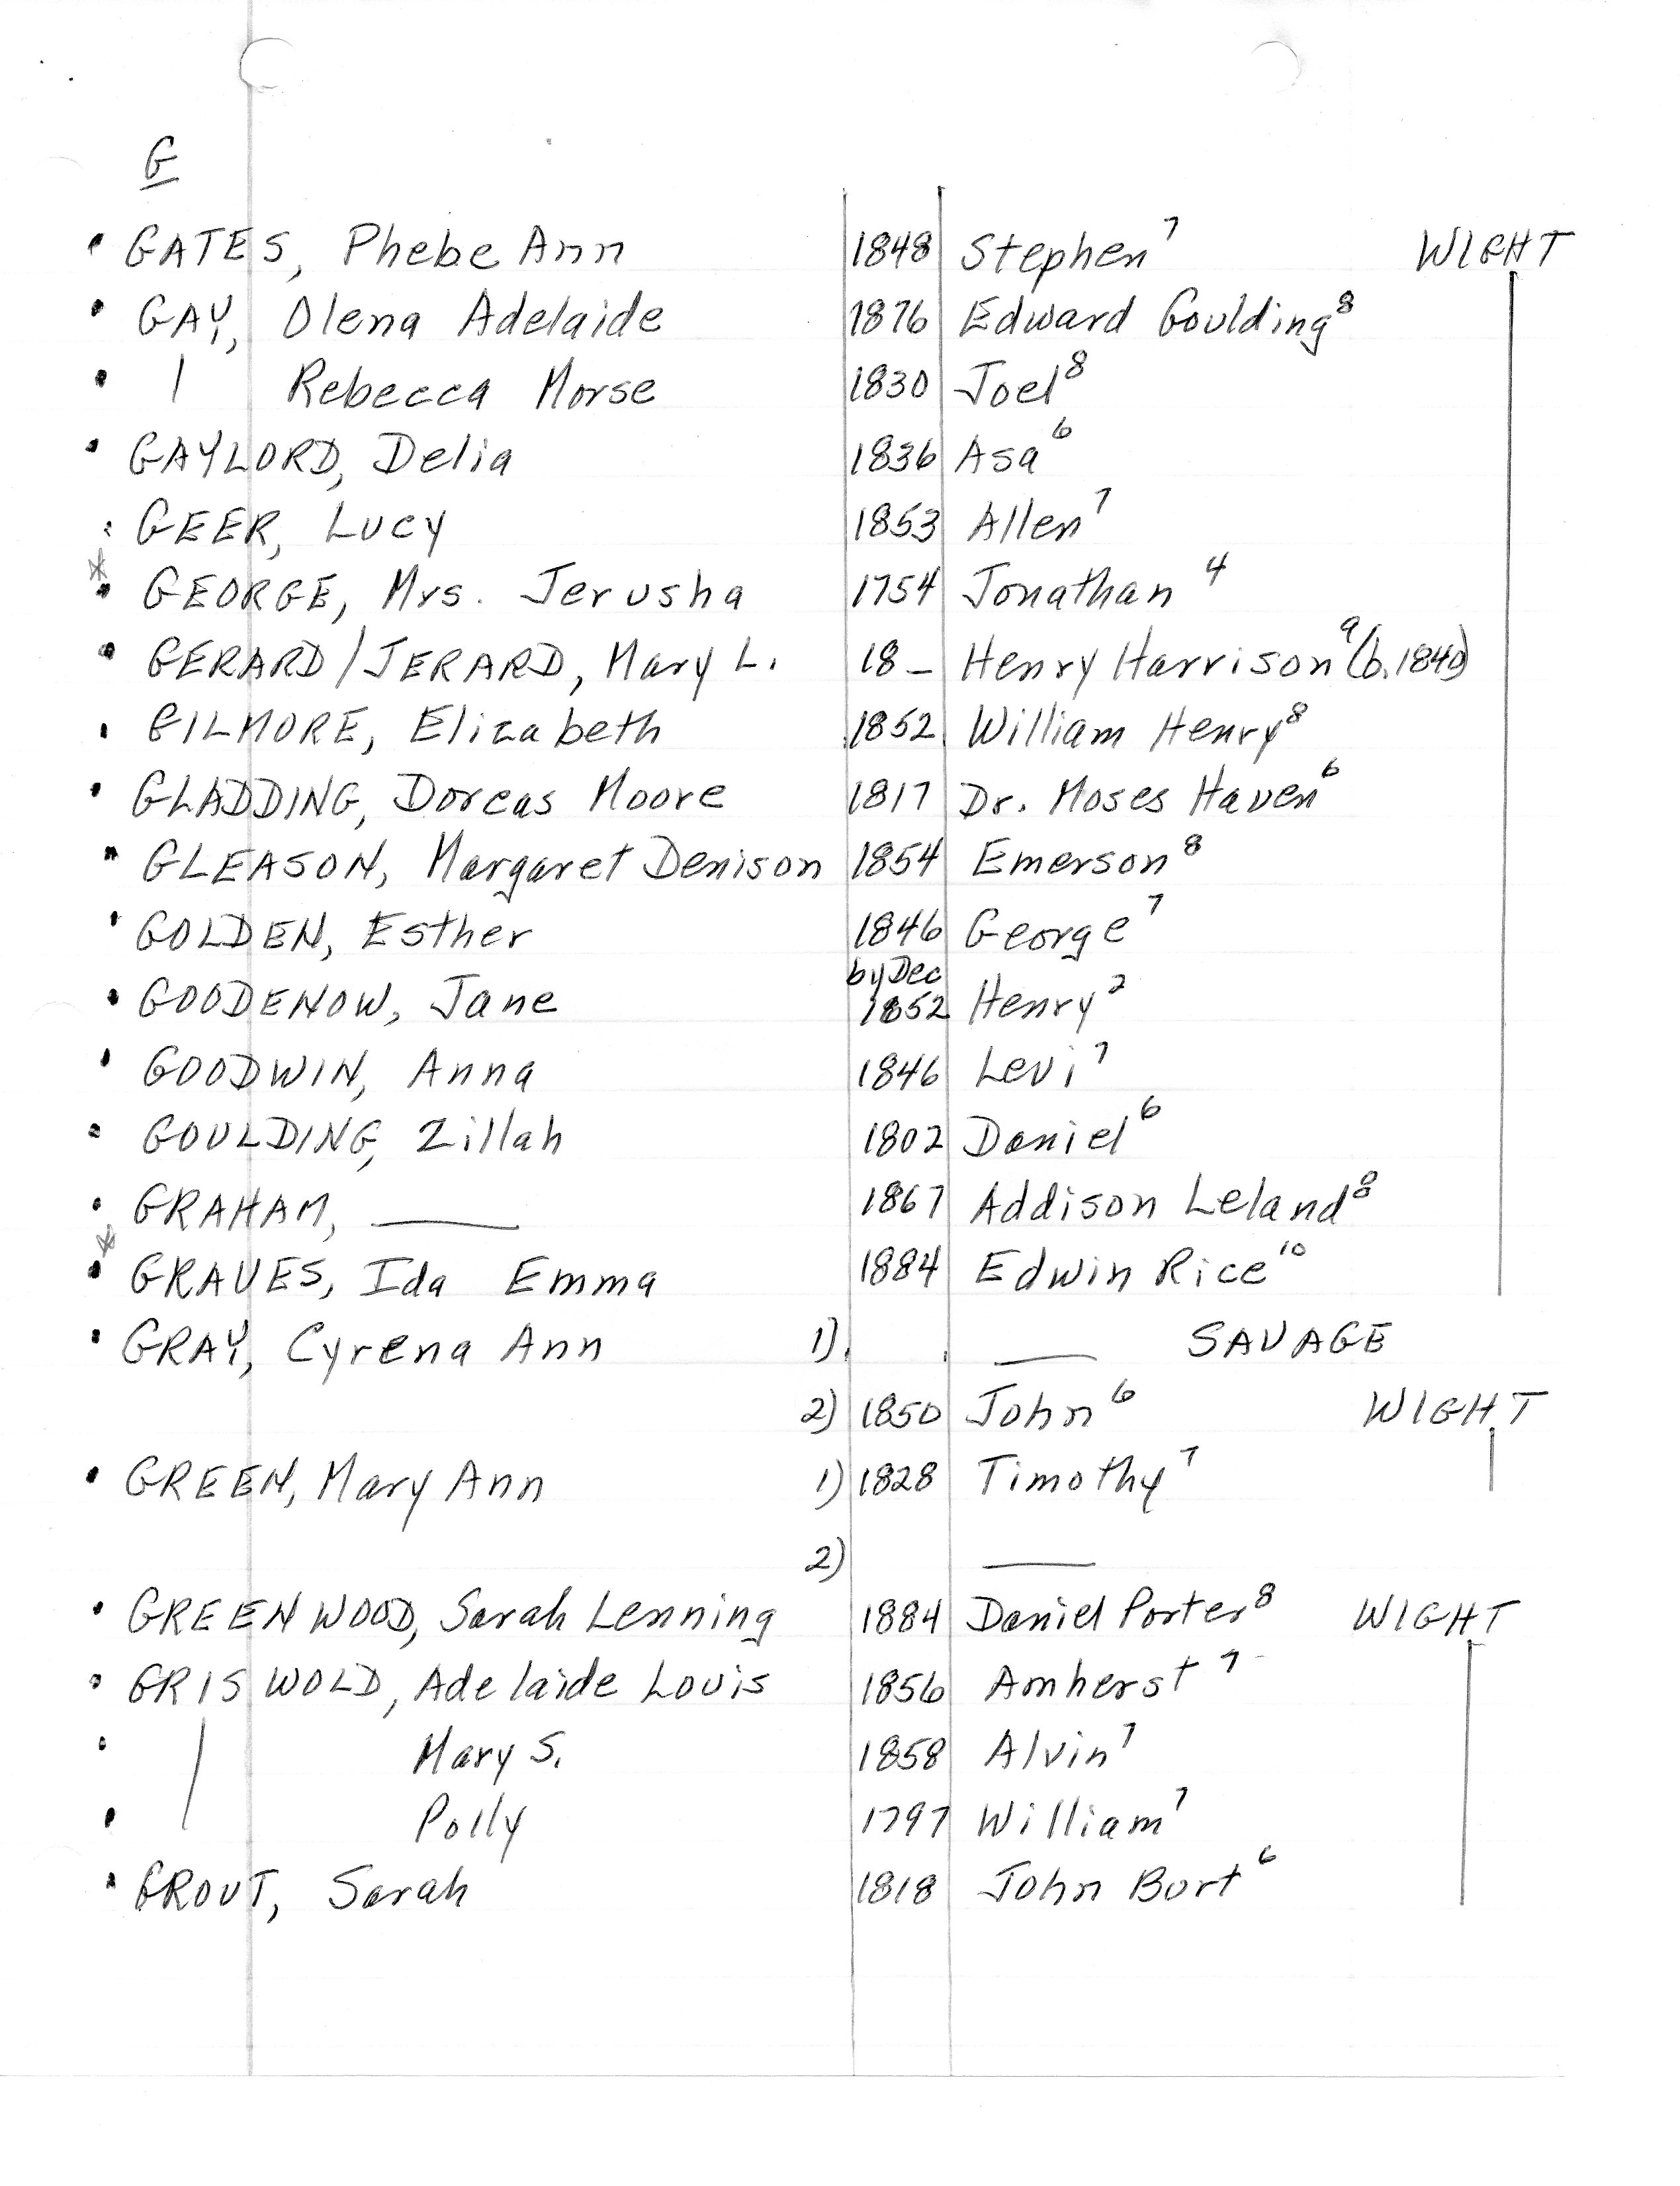 G
• GATES, Phebe Ann 1848 Stephen⁷ WIGHT
• GAY, Olena Adelaide 1876 Edward Goulding⁸
• | Rebecca Morse 1830 Joel⁸
• GAYLORD, Delia 1836 Asa⁶
• GEER, Lucy 1853 Allen⁷
*• GEORGE, Mrs. Jerusha 1754 Jonathan⁴
• GERARD/JERARD, Mary L. 18_ Henry Harrison⁹ (b. 1840)
• GILMORE, Elizabeth 1852 William Henry⁸
• GLADDING, Dorcas Moore 1817 Dr. Moses Haven⁶
• GLEASON, Margaret Denison 1854 Emerson⁸
• GOLDEN, Esther 1846 George⁷
by Dec
• GOODENOW, Jane 1652 Henry²
• GOODWIN, Anna 1846 Levi⁷
• GOULDING, Zillah 1802 Daniel⁶
• GRAHAM, ___ 1867 Addison Leland⁸
*• GRAVES, Ida Emma 1884 Edwin Rice¹⁰
• GRAY, Cyrena Ann 1) ___ SAVAGE
2) 1850 John⁶ WIGHT
• GREEN, Mary Ann 1) 1828 Timothy⁷
2) ___
• GREENWOOD, Sarah Lenning 1884 Daniel Porter⁸ WIGHT
• GRISWOLD, Adelaide Louis 1856 Amherst⁷
• | Mary S. 1858 Alvin⁷
• Polly 1797 William⁷
• GROUT, Sarah 1818 John Burt⁶